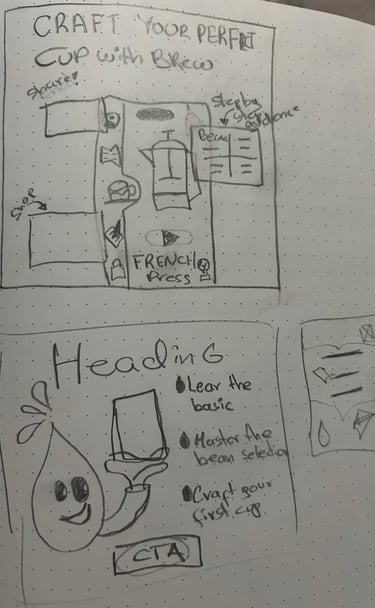 CRAFT YOUR PERFECT
CUP with Brew
share!
step by
step
guidence
Bean
Shop
FRENCH
Press
HeadinG
Lear the
basic
Master the
bean selection
Craft your
first cup
CTA